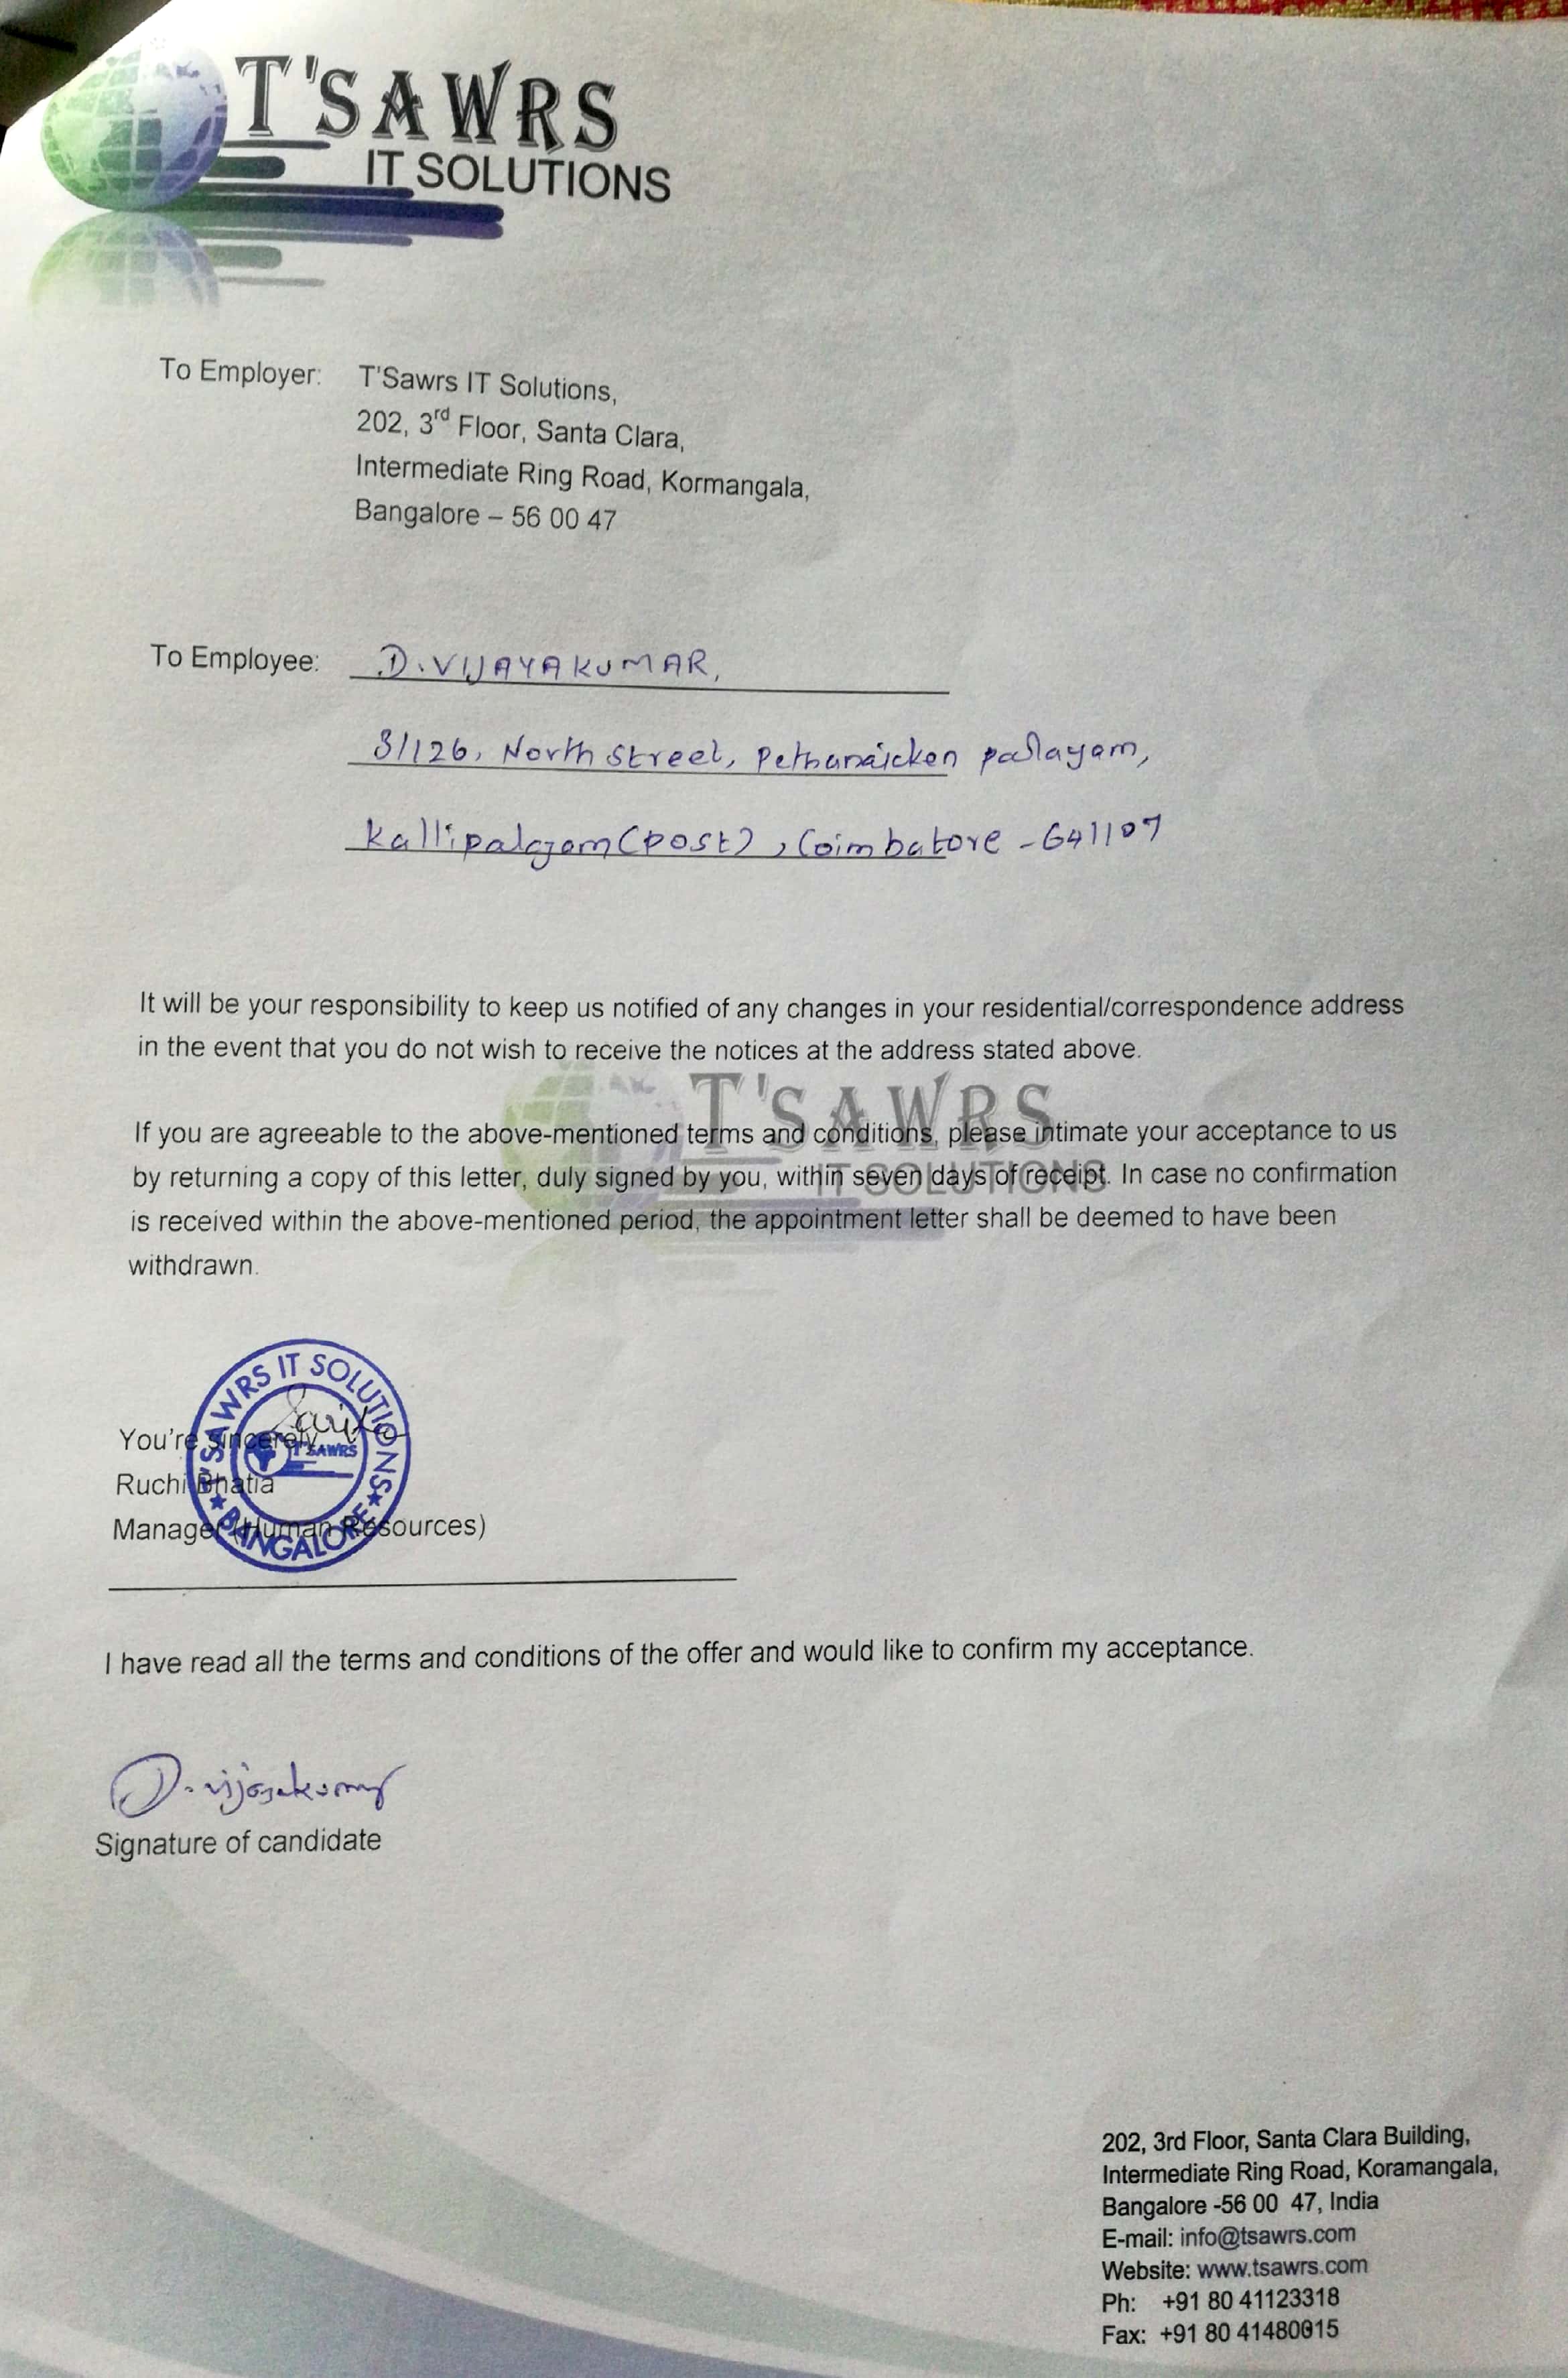 T'SAWRS
IT SOLUTIONS
To Employer: T'Sawrs IT Solutions,
202, 3rd Floor, Santa Clara,
Intermediate Ring Road, Kormangala,
Bangalore – 56 00 47
To Employee: D.VIJAYAKUMAR,
3/126, North Street, Pethanaicken palayam,
kallipalayam(post), Coimbatore - 641107
It will be your responsibility to keep us notified of any changes in your residential/correspondence address
in the event that you do not wish to receive the notices at the address stated above.
T'SAWRS
IT SOLUTIONS
If you are agreeable to the above-mentioned terms and conditions, please intimate your acceptance to us
by returning a copy of this letter, duly signed by you, within seven days of receipt. In case no confirmation
is received within the above-mentioned period, the appointment letter shall be deemed to have been
withdrawn.
T'SAWRS IT SOLUTIONS
T'SAWRS
★ BANGALORE ★
You're sincerely
Ruchi Bhatia
Manager (Human Resources)
I have read all the terms and conditions of the offer and would like to confirm my acceptance.
D. vijayakumar
Signature of candidate
202, 3rd Floor, Santa Clara Building,
Intermediate Ring Road, Koramangala,
Bangalore -56 00 47, India
E-mail: info@tsawrs.com
Website: www.tsawrs.com
Ph: +91 80 41123318
Fax: +91 80 41480015